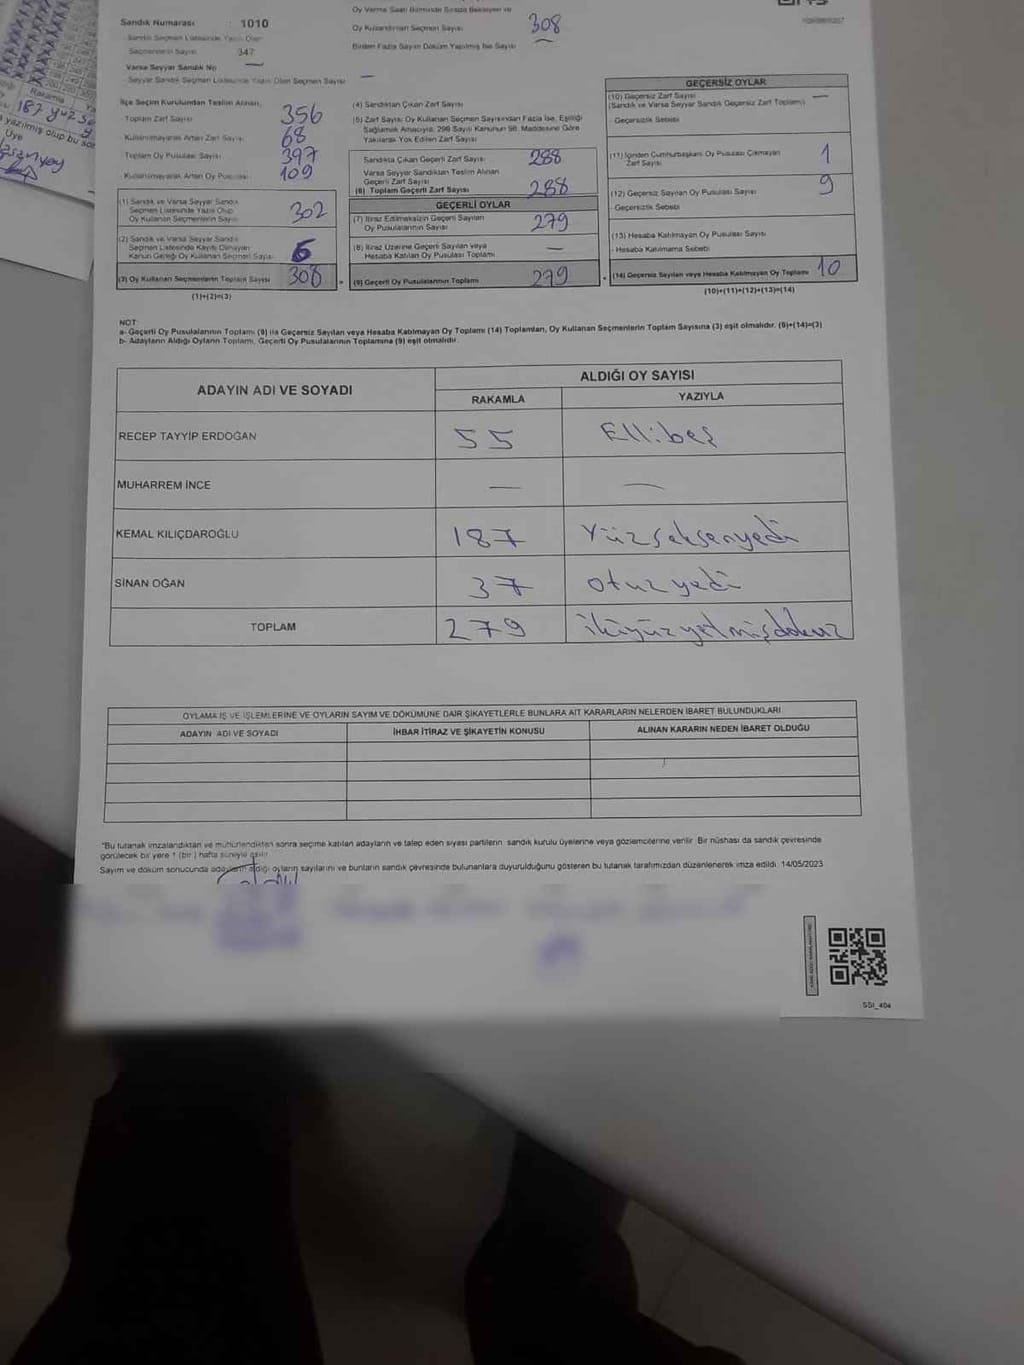 Sandık Numarası : 1010
Sandık Seçmen Listesinde Yazılı Olan
Seçmenlerin Sayısı 347
Varsa Seyyar Sandık No —
Seyyar Sandık Seçmen Listesinde Yazılı Olan Seçmen Sayısı —
Oy Verme Saati Bitiminde Sırada Bekleyen ve
Oy Kullandırılan Seçmen Sayısı 308
Birden Fazla Sayım Döküm Yapılmış İse Sayısı —
İlçe Seçim Kurulundan Teslim Alınan;
Toplam Zarf Sayısı 356
Kullanılmayarak Artan Zarf Sayısı 68
Toplam Oy Pusulası Sayısı 397
Kullanılmayarak Artan Oy Pusulası 109
(1) Sandık ve Varsa Seyyar Sandık
Seçmen Listesinde Yazılı Olup
Oy Kullanan Seçmenlerin Sayısı 302
(2) Sandık ve Varsa Seyyar Sandık
Seçmen Listesinde Kayıtlı Olmayan
Kanun Gereği Oy Kullanan Seçmen Sayısı 6
(3) Oy Kullanan Seçmenlerin Toplam Sayısı 308
(1)+(2)=(3)
(4) Sandıktan Çıkan Zarf Sayısı
(5) Zarf Sayısı Oy Kullanan Seçmen Sayısından Fazla İse, Eşitliği
Sağlamak Amacıyla, 298 Sayılı Kanunun 98. Maddesine Göre
Yakılarak Yok Edilen Zarf Sayısı
Sandıkta Çıkan Geçerli Zarf Sayısı 288
Varsa Seyyar Sandıktan Teslim Alınan
Geçerli Zarf Sayısı
(6) Toplam Geçerli Zarf Sayısı 288
GEÇERLİ OYLAR
(7) İtiraz Edilmeksizin Geçerli Sayılan
Oy Pusulalarının Sayısı 279
(8) İtiraz Üzerine Geçerli Sayılan veya
Hesaba Katılan Oy Pusulası Toplamı —
(9) Geçerli Oy Pusulalarının Toplamı 279
GEÇERSİZ OYLAR
(10) Geçersiz Zarf Sayısı —
(Sandık ve Varsa Seyyar Sandık Geçersiz Zarf Toplamı)
- Geçersizlik Sebebi
(11) İçinden Cumhurbaşkanı Oy Pusulası Çıkmayan
Zarf Sayısı 1
(12) Geçersiz Sayılan Oy Pusulası Sayısı 9
- Geçersizlik Sebebi
(13) Hesaba Katılmayan Oy Pusulası Sayısı
- Hesaba Katılmama Sebebi
(14) Geçersiz Sayılan veya Hesaba Katılmayan Oy Toplamı 10
(10)+(11)+(12)+(13)=(14)
NOT:
a- Geçerli Oy Pusulalarının Toplamı (9) ila Geçersiz Sayılan veya Hesaba Katılmayan Oy Toplamı (14) Toplamları, Oy Kullanan Seçmenlerin Toplam Sayısına (3) eşit olmalıdır. (9)+(14)=(3)
b- Adayların Aldığı Oyların Toplamı, Geçerli Oy Pusulalarının Toplamına (9) eşit olmalıdır.
ADAYIN ADI VE SOYADI
ALDIĞI OY SAYISI
RAKAMLA YAZIYLA
RECEP TAYYİP ERDOĞAN 55 Ellibeş
MUHARREM İNCE — —
KEMAL KILIÇDAROĞLU 187 Yüzseksenyedi
SİNAN OĞAN 37 otuzyedi
TOPLAM 279 ikiyüzyetmişdokuz
OYLAMA İŞ VE İŞLEMLERİNE VE OYLARIN SAYIM VE DÖKÜMÜNE DAİR ŞİKAYETLERLE BUNLARA AİT KARARLARIN NELERDEN İBARET BULUNDUKLARI
ADAYIN ADI VE SOYADI İHBAR İTİRAZ VE ŞİKAYETİN KONUSU ALINAN KARARIN NEDEN İBARET OLDUĞU
*Bu tutanak imzalandıktan ve mühürlendikten sonra seçime katılan adayların ve talep eden siyasi partilerin sandık kurulu üyelerine veya gözlemcilerine verilir. Bir nüshası da sandık çevresinde
görülecek bir yere 1 (bir) hafta süreyle asılır.
Sayım ve döküm sonucunda adayların aldığı oyların sayılarını ve bunların sandık çevresinde bulunanlara duyurulduğunu gösteren bu tutanak tarafımızdan düzenlenerek imza edildi. 14/05/2023
SSI_404
Rakamla
187
yazılmış olup bu
Üye